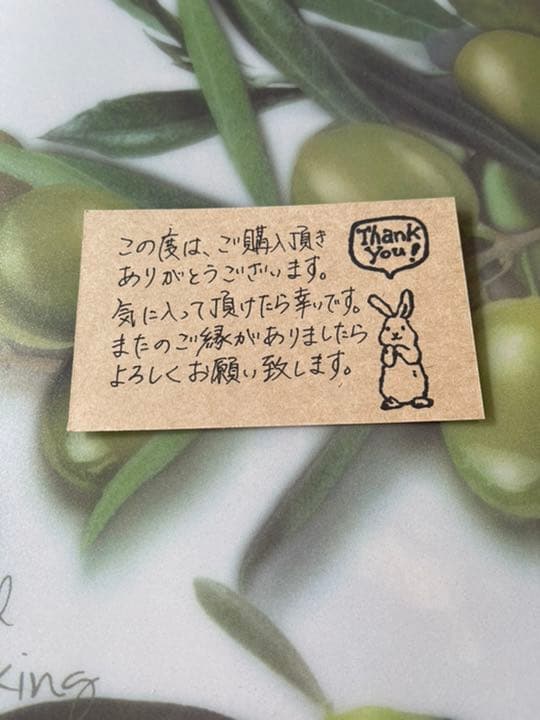 この度は、ご購入頂き
ありがとうございます。
気に入って頂けたら幸いです。
またのご縁がありましたら
よろしくお願い致します。
Thank
You!
king